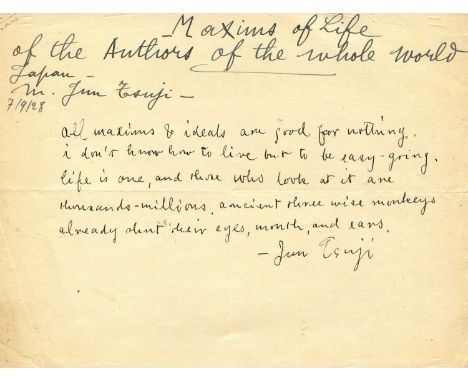 Maxims of Life
of the Authors of the whole world
Japan -
M. Jun Tsuji -
7/9/28
all maxims & ideals are good for nothing.
i don't know how to live but to be easy-going.
life is one, and those who look at it are
thousands-millions. ancient three wise monkeys
already shut their eyes, mouth, and ears.
- Jun Tsuji